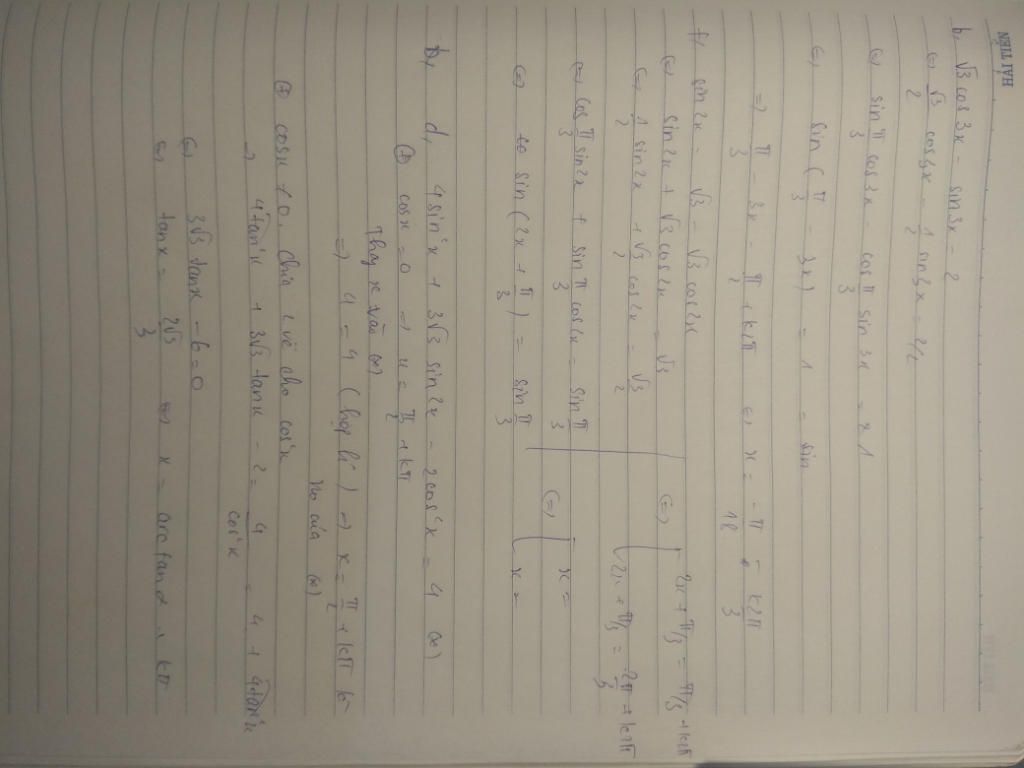 HẢI TIẾN
b, √3 cos3x - sin3x = 2
(=) √3/2 cos3x - 1/2 sin3x = 2/2
(=) sin π/3 cos3x - cos π/3 sin3x = 1
(=) sin (π/3 - 3x) = 1 = sin
=) π/3 - 3x = π/2 + k2π (=) x = -π/18 - k2π/3
f, sin2x = √3 - √3 cos2x
(=) sin2x + √3 cos2x = √3
(=) 1/2 sin2x + √3/2 cos2x = √3/2
(=) cos π/3 sin2x + sin π/3 cos2x = sin π/3
(=) sin (2x + π/3) = sin π/3
(=) 2x + π/3 = π/3 + k2π
2x + π/3 = 2π/3 + k2π
(=) x =
x =
b, d, 4sin²x + 3√3 sin2x - 2cos²x = 4 (*)
(+) cosx = 0 =) x = π/2 + kπ
Thay x vào (*)
=) 4 = 4 (hợp lí) =) x = π/2 + kπ là
no của (*)
(+) cosx ≠ 0. Chia 2 vế cho cos²x
=) 4tan²x + 3√3 tanx - 2 = 4/cos²x = 4 + 4tan²x
(=) 3√3 tanx - 6 = 0
(=) tanx = 2√3/3 (=) x = arctanα + kπ